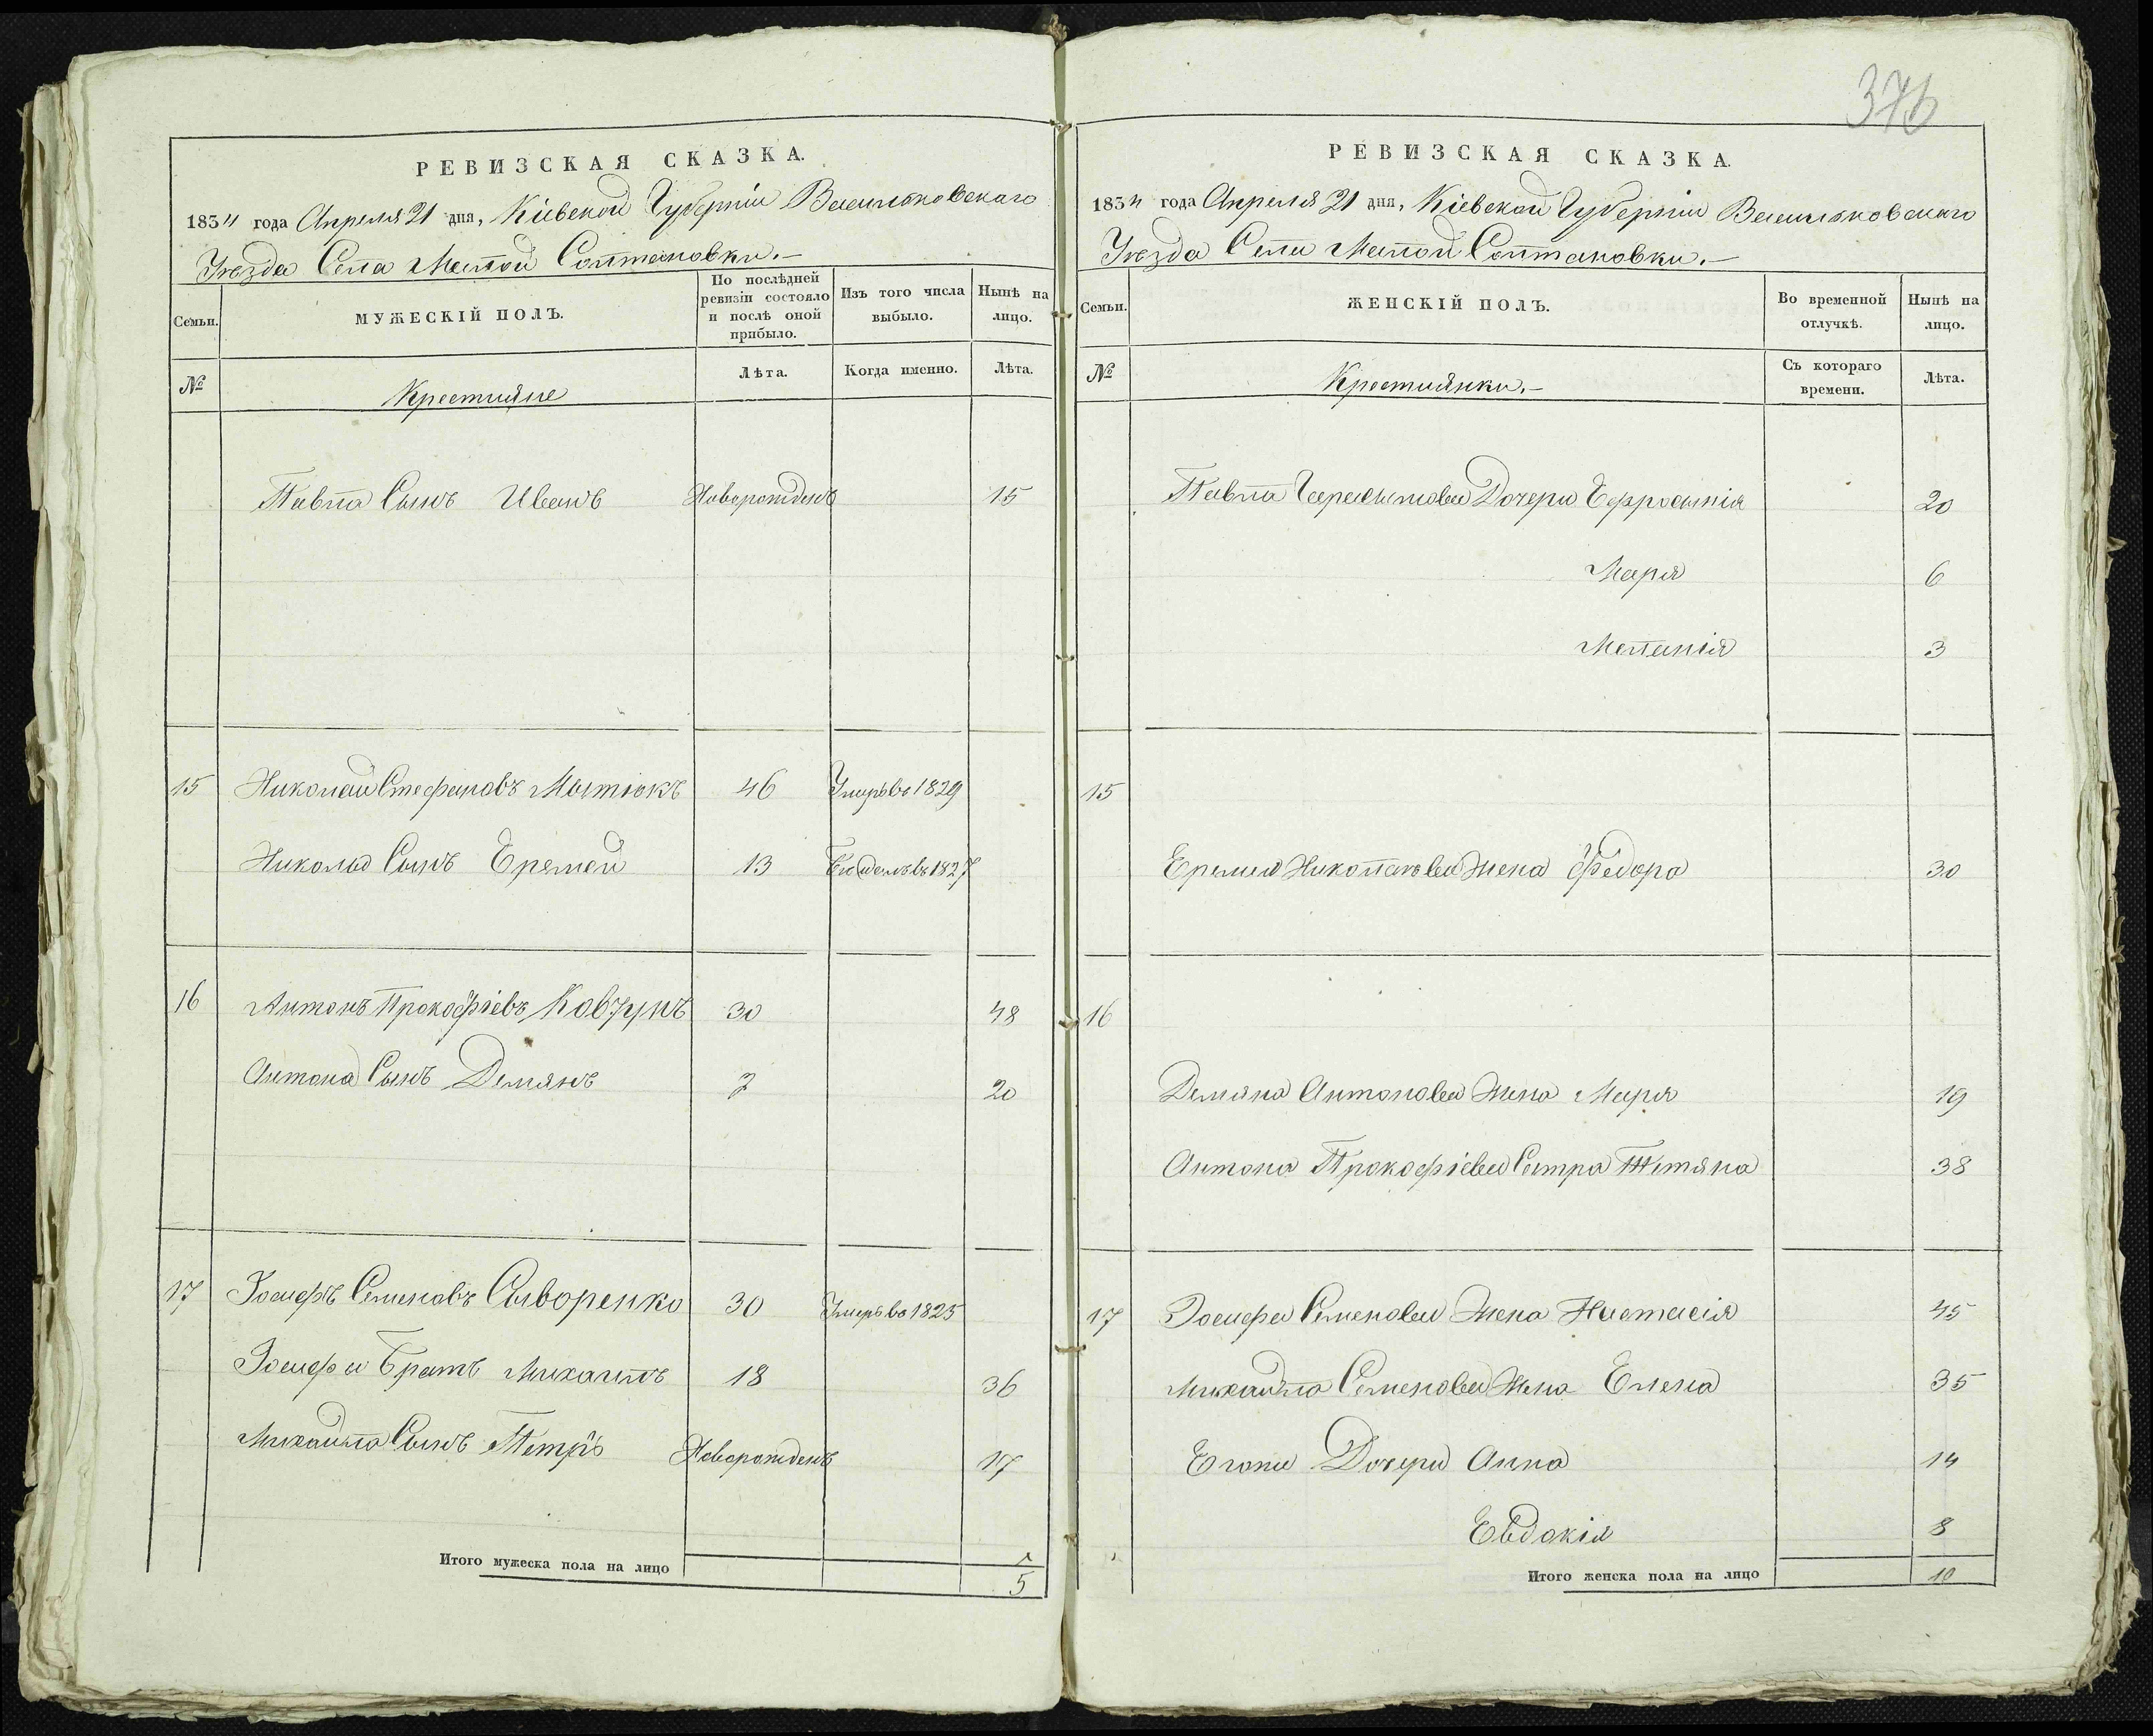 376
РЕВИЗСКАЯ СКАЗКА.
1834 года Апреля 21 дня, Кіевской Губерніи Васильковскаго
Уезда Села Малой Солтановки.-
Семьи.
МУЖЕСКІЙ ПОЛЪ.
По послѣдней ревизіи состояло и послѣ оной прибыло.
Изъ того числа выбыло.
Нынѣ на лицо.
№
Крестияне
Лѣта.
Когда именно.
Лѣта.
Павла Сынъ Иванъ Новорожденъ 15
15 Николай Стефановъ Мытюкъ 46 Умеръ въ 1829
Николая Сынъ Еремей 13 въ 1827
16 Антонъ Прокофіевъ Ковтунъ 30 48
Антона Сынъ Демянъ 2 20
17 Іосифъ Семеновъ Сыворенко 30 Умеръ въ 1825
Іосифа Братъ Михаилъ 18 36
Михайла Сынъ Петръ Новорожденъ 17
Итого мужеска пола на лицо 5
РЕВИЗСКАЯ СКАЗКА.
1834 года Апреля 21 дня, Кіевской Губерніи Васильковскаго
Уезда Села Малой Солтановки.-
Семьи.
ЖЕНСКІЙ ПОЛЪ.
Во временной отлучкѣ.
Нынѣ на лицо.
№
Крестиянки.-
Съ котораго времени.
Лѣта.
Павла Герасимова Дочери Ефросинія 20
Марія 6
Меланія 3
15
Еремея Николаева Жена Федора 30
16
Демяна Антонова Жена Марія 19
Антона Прокофіева Сестра Тетяна 38
17 Іосифа Семенова Жена Настасія 45
Михайла Семенова Жена Елена 35
Егоже Дочери Анна 14
Евдокія 8
Итого женска пола на лицо 10